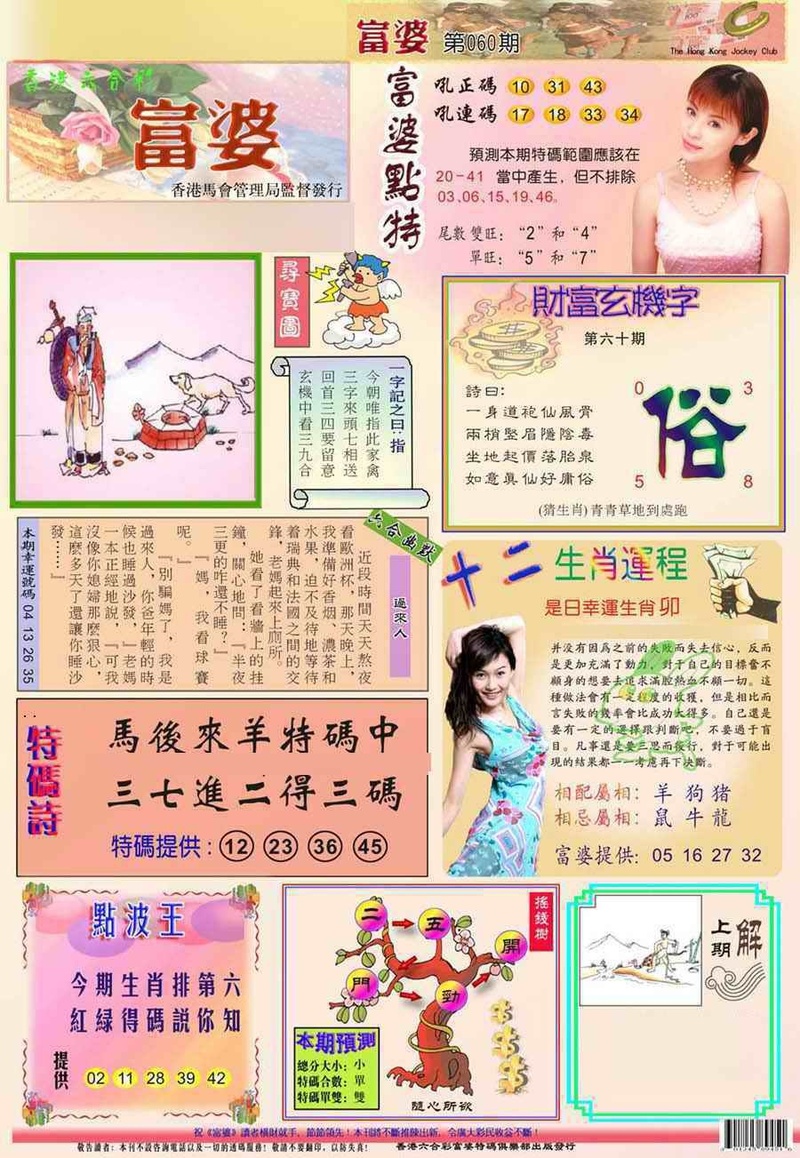 富婆 第060期
The Hong Kong Jockey Club
香港六合彩
富婆
香港馬會管理局監督發行
富婆點特
吼正碼 10 31 43
吼連碼 17 18 33 34
預測本期特碼範圍應該在
20-41 當中產生，但不排除
03、06、15、19、46。
尾數雙旺：“2”和“4”
單旺：“5”和“7”
尋寶圖
一字記之曰：指
今朝唯指此家禽
三字來頭七相送
回首三四要留意
玄機中看三九合
財富玄機字
第六十期
詩曰：
一身道袍仙風骨
兩梢堅眉隱陰毒
坐地起價落胎泉
如意真仙好庸俗
俗
0 3
5 8
(猜生肖)青青草地到處跑
六合幽默
過來人
近段時間天天熬夜
看歐洲杯，那天晚上，
我準備好香烟、濃茶和
水果，迫不及待地等待
着瑞典和法國之間的交
鋒。老媽起來上廁所。
她看了看牆上的挂
鐘，關心地問：『半夜
三更的咋還不睡？』
『媽，我看球賽
呢。』
『別騙媽了，我是
過來人，你爸年輕的時
候也睡過沙發，』老媽
一本正經地說，『可我
沒像你媳婦那麼狠心，
這麼多天了還讓你睡沙
發……』
本期幸運號碼 04 13 26 35
十二生肖運程
是日幸運生肖 卯
并没有因爲之前的失敗而失去信心，反而
是更加充滿了動力，對于自己的目標奮不
顧身的想要去追求滿腔熱血不顧一切。這
種做法會有一定程度的收獲，但是相比而
言失敗的幾率會比成功大得多。自己還是
要有一定的選擇跟判斷吧，不要過于盲
目。凡事還是要三思而後行，對于可能出
現的結果都一一考慮再下决斷。
相配屬相：羊 狗 豬
相忌屬相：鼠 牛 龍
富婆提供：05 16 27 32
特碼詩
馬後來羊特碼中
三七進二得三碼
特碼提供：12 23 36 45
點波王
今期生肖排第六
紅緑得碼說你知
提供 02 11 28 39 42
搖錢樹
二 五 開 門 勁
本期預測
總分大小：小
特碼合數：單
特碼單雙：雙
隨心所欲
上期解
祝《富婆》讀者橫財就手，節節領先！本刊將不斷推陳出新，令廣大彩民收益不斷！
敬告讀者：本刊不設咨詢電話以及一切的透碼服務！敬請不要翻印，以防失真！ 香港六合彩富婆特碼俱樂部出版發行